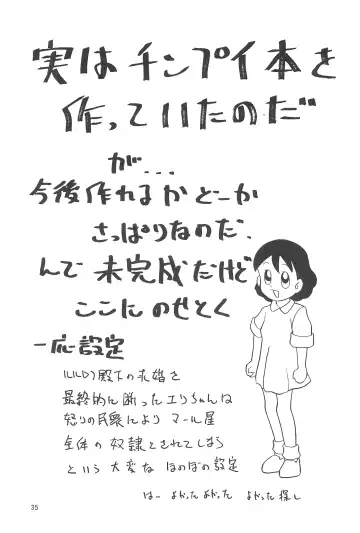 実はチンプイ本を
作っていたのだ
が...
今後作れるかどーか
さっぱりなのだ.
んで未完成だけど
ここにのせとく
一応設定
ルルロフ殿下の求婚を
最終的に断ったエリちゃんは
怒りの民衆により マール星
全体の奴隷とされてしまう
という大変な ほのぼの設定
はー よかったよかった よかった探し
35